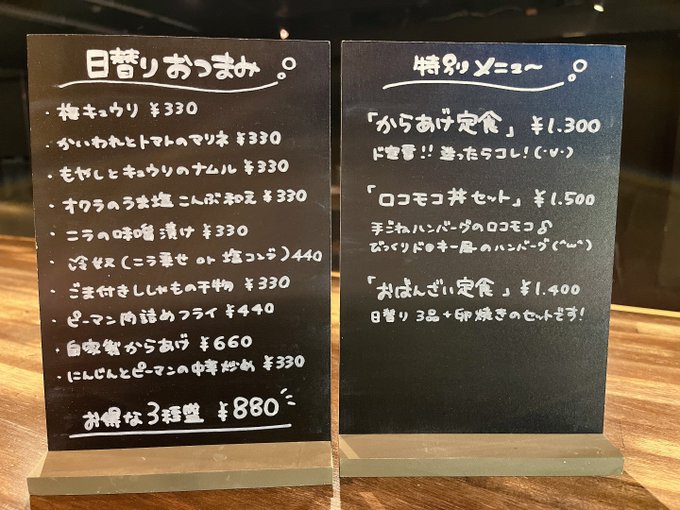 日替りおつまみ
・梅キュウリ ¥330
・かいわれとトマトのマリネ ¥330
・もやしとキュウリのナムル ¥330
・オクラのうま塩こんぶ和え ¥330
・ニラの味噌漬け ¥330
・冷奴(ニラ乗せ or 塩コンブ)440
・ごま付きししゃもの干物 ¥330
・ピーマン肉詰めフライ ¥440
・自家製からあげ ¥660
・にんじんとピーマンの中華炒め ¥330
お得な3種盛 ¥880
特別メニュー
「からあげ定食」 ¥1.300
ド定番!! 迷ったらコレ!(・∀・)
「ロコモコ丼セット」 ¥1.500
手ごねハンバーグのロコモコ♪
びっくりドンキー風のハンバーグ(^ω^)
「おばんざい定食」 ¥1.400
日替り 3品+卵焼きのセットです!